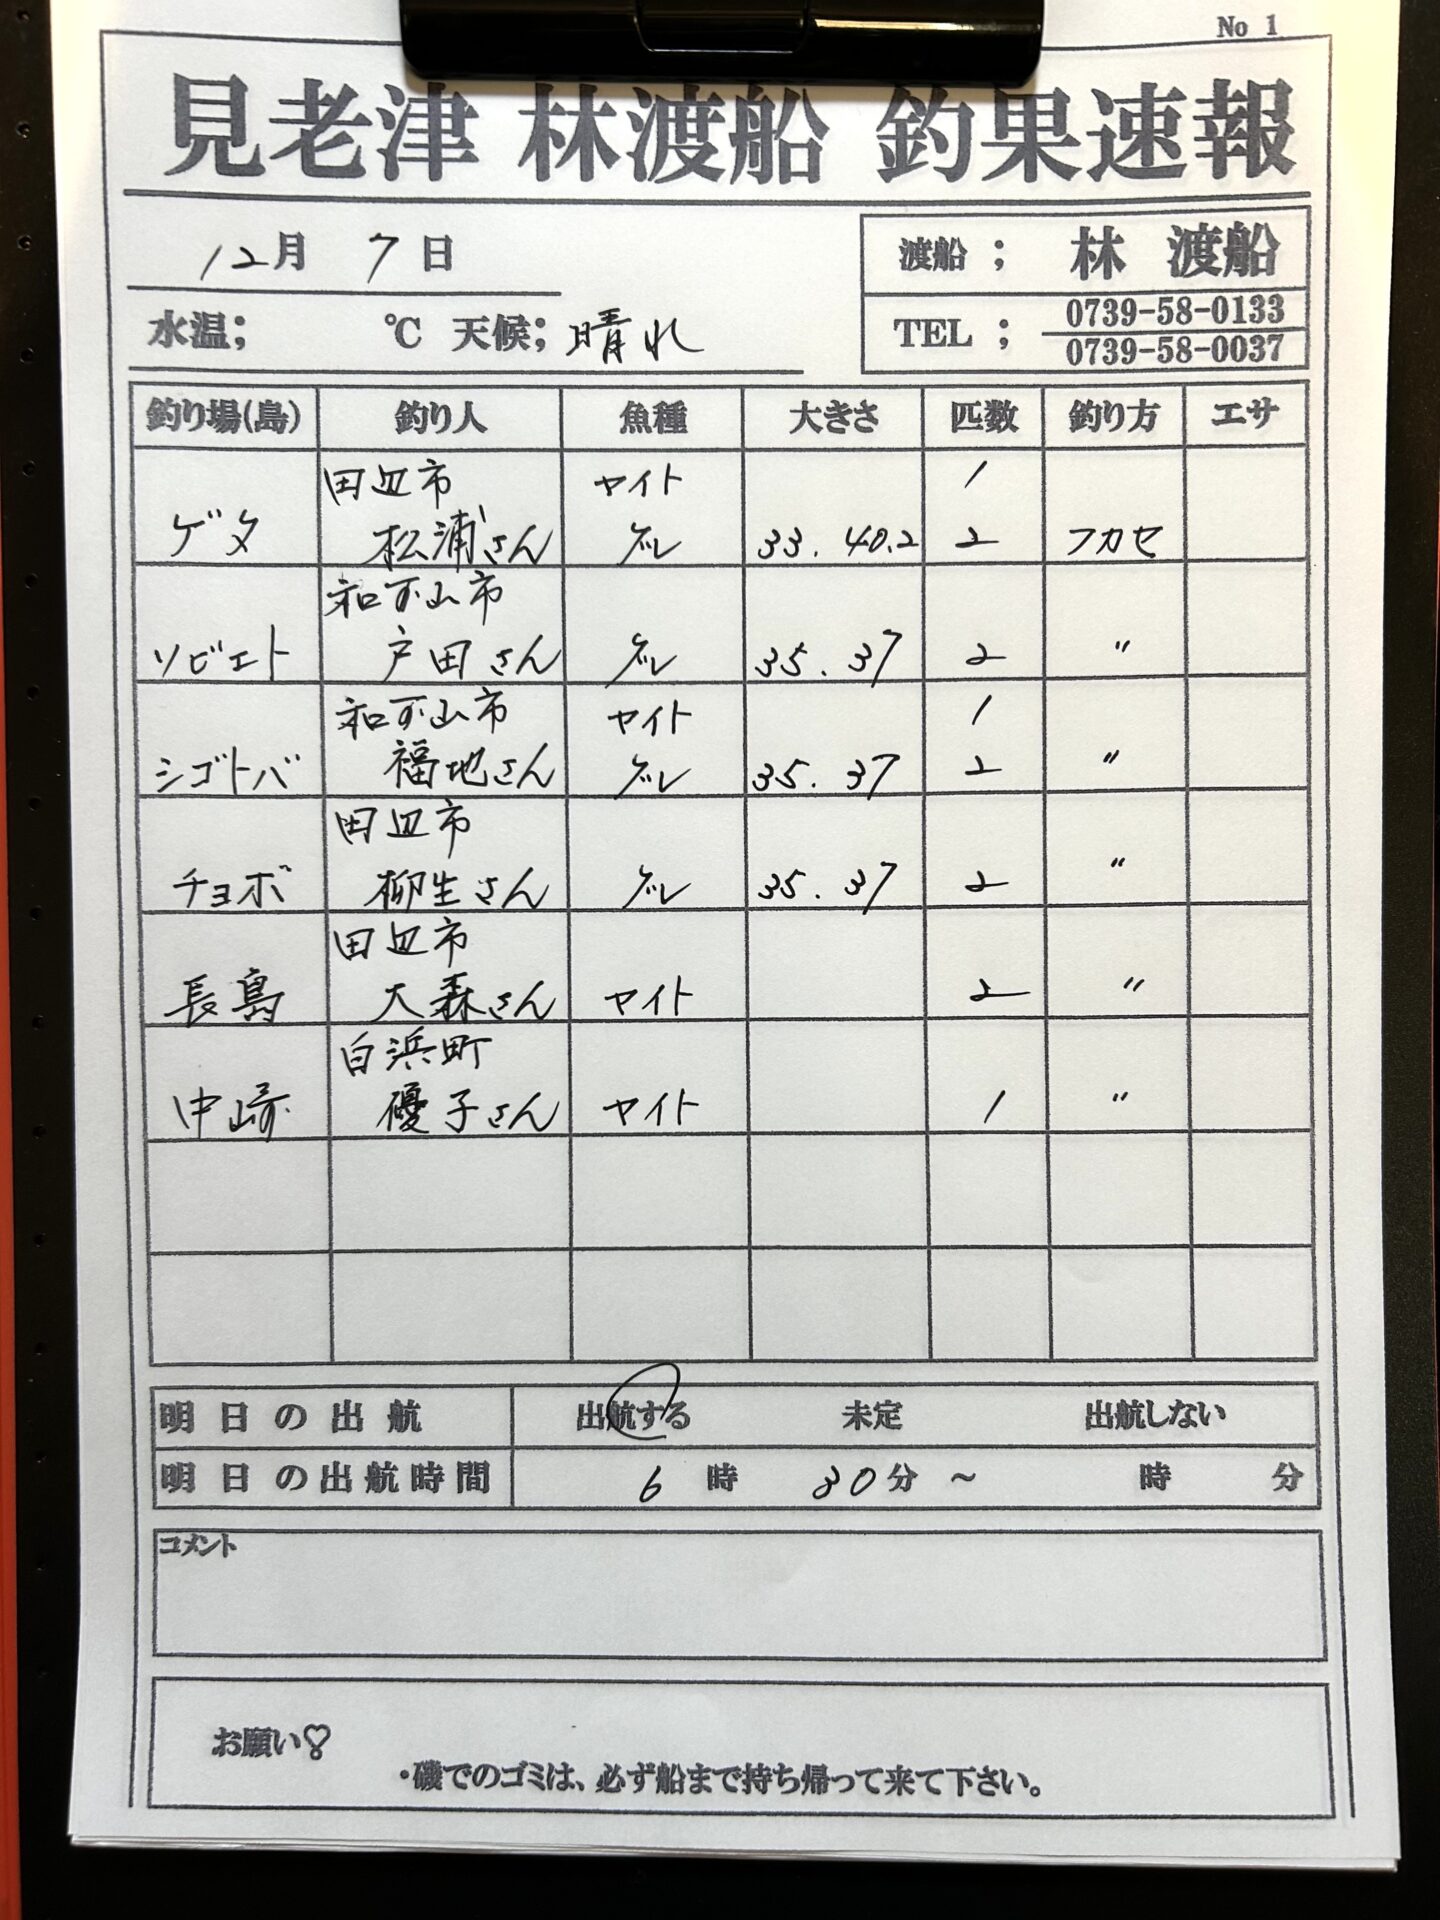 No 1
見老津 林渡船 釣果速報
12月 7日
渡船 ; 林 渡船
水温; ℃ 天候; 晴れ
TEL ; 0739-58-0133
0739-58-0037
釣り場(島) 釣り人 魚種 大きさ 匹数 釣り方 エサ
田辺市 ヤイト 1
ゲタ 松浦さん グレ 33. 40.2 2 フカセ
和可山市
ソビエト 戸田さん グレ 35. 37 2 〃
和可山市 ヤイト 1
シゴトバ 福地さん グレ 35. 37 2 〃
田辺市
チョボ 柳生さん グレ 35. 37 2 〃
田辺市
長島 大森さん ヤイト 2 〃
白浜町
中崎 優子さん ヤイト 1 〃
明日の出航 出航する 未定 出航しない
明日の出航時間 6 時 30分 ～ 時 分
コメント
お願い♡
・磯でのゴミは、必ず船まで持ち帰って来て下さい。